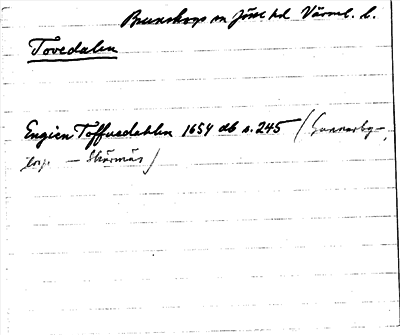 Brunskogs sn Jösse hd Värml. l.
Tovedalen
Engien Toffuedahlen 1654 db s. 245 (Gunnarby-
torp — Skärmnäs)